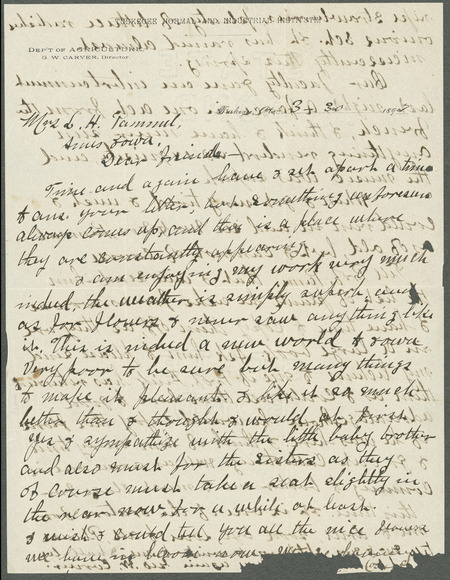 TUSKEGEE NORMAL AND INDUSTRIAL INSTITUTE
DEP'T OF AGRICULTURE.
G. W. CARVER, Director.
3 + 30
Mrs L. H. Pammel,
Ames Iowa.
Dear Friend:—
Time and again have I set apart a time
to ans. your letter, but something unforseen
always comes up and this is a place where
they are constantly appearing.
I am enjoying my work very much
indeed, the weather is simply superb, and
as for flowers I never saw anything like
it. This is indeed a new world to
Very poor to be sure but many things
to make it pleasant, I like it so much
better than I thought I would at first.
Yes I sympathize with the little baby brother
and also must for the sisters as they
of course must take a seat slightly in
the rear now for a while at least.
I wish I could tell you all the nice flowers
we have in bloom now